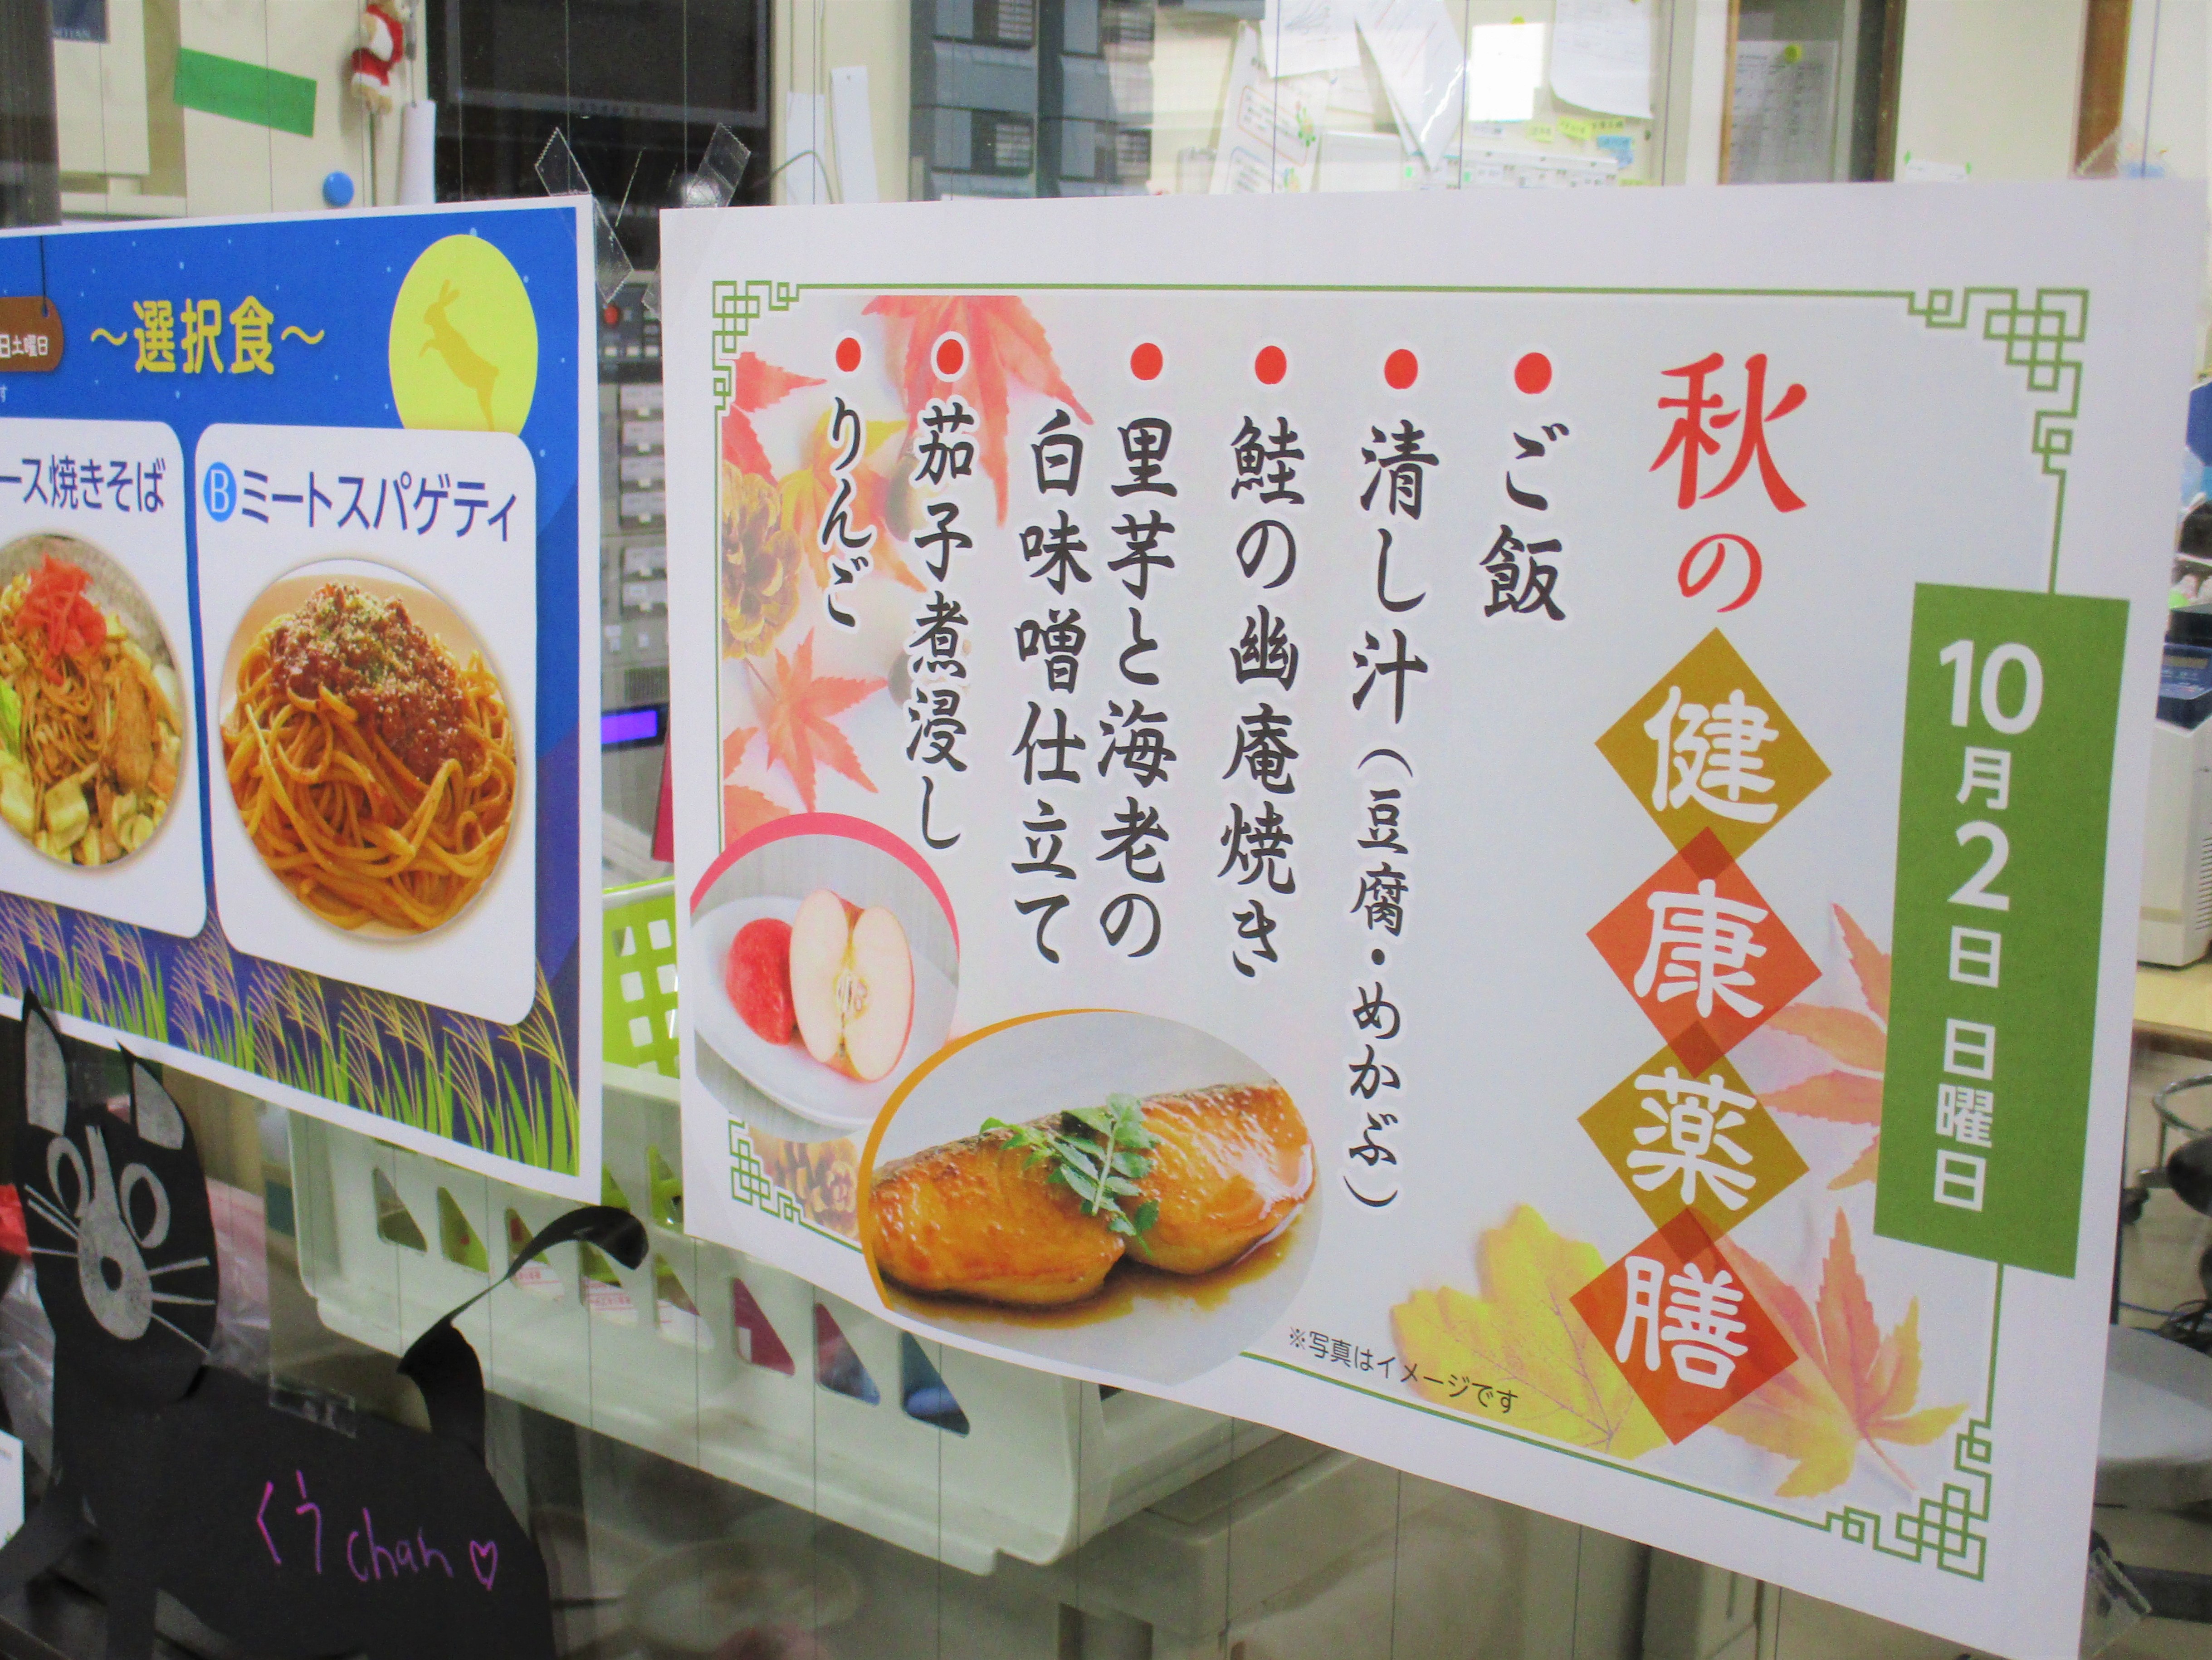 ～選択食～
日土曜日
ース焼きそば
B ミートスパゲティ
10月2日 日曜日
秋の健康薬膳
● ご飯
● 清し汁(豆腐・めかぶ)
● 鮭の幽庵焼き
● 里芋と海老の
白味噌仕立て
● 茄子煮浸し
● りんご
※写真はイメージです
くうchan♡